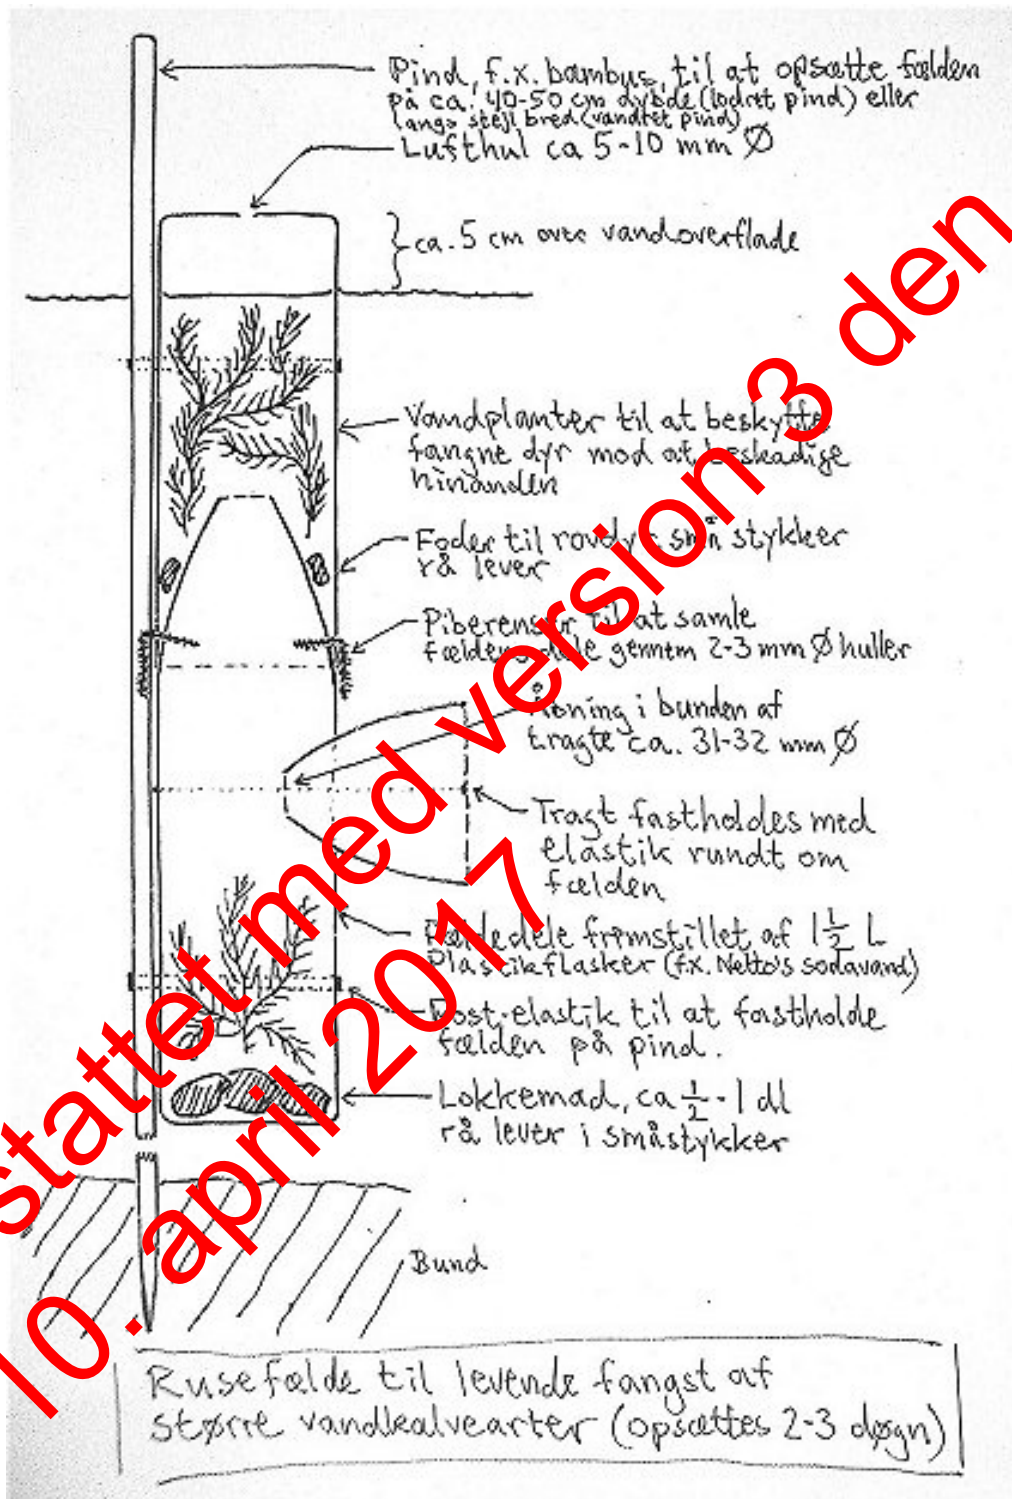 Pind, f.x. bambus, til at opsætte fælden
på ca. 40-50 cm dybde (lodret pind) eller
langs stejl bred (vandret pind)
Lufthul ca 5-10 mm Ø
ca. 5 cm over vandoverflade
Vandplanter til at beskytte
fangne dyr mod at beskadige
hinanden
Foder til rovdyr små stykker
rå lever
Piberenser til at samle
fældens dele gennem 2-3 mm Ø huller
Åbning i bunden af
tragte ca. 31-32 mm Ø
Tragt fastholdes med
elastik rundt om
fælden
Fældedele fremstillet af 1½ L
Plastikflasker (fx. Netto's sodavand)
Post-elastik til at fastholde
fælden på pind.
Lokkemad, ca ½-1 dl
rå lever i småstykker
Bund
Rusefælde til levende fangst af
større vandkalvearter (opsættes 2-3 døgn)
stattet med version 3 den
10. april 2017